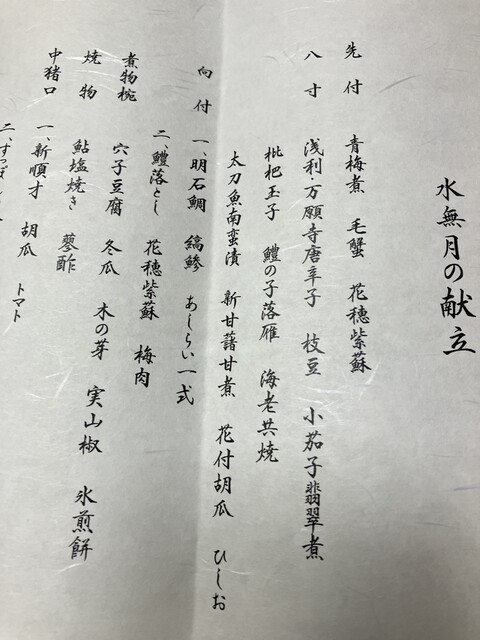 水無月の献立
先付 青梅煮 毛蟹 花穂紫蘇
八寸 浅利万願寺唐辛子 枝豆 小茄子翡翠煮
枇杷玉子 鱧の子落雁 海老共焼
太刀魚南蛮漬 新甘藷甘煮 花付胡瓜 ひしお
向付 一、明石鯛 縞鯵 あしらい一式
二、鱧落とし 花穂紫蘇 梅肉
煮物椀 穴子豆腐 冬瓜 木の芽 実山椒 氷煎餅
焼物 鮎塩焼き 蓼酢
中猪口 一、新順才 胡瓜 トマト
二、すっぽん